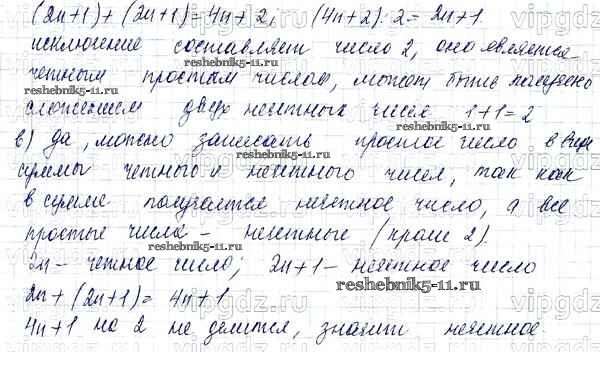 (2n+1)+(2n+1)=4n+2; (4n+2):2=2n+1.
исключение составляет число 2, оно является
четным простым числом, может быть получено
сложением двух нечетных чисел 1+1=2
в) да, можно записать простое число в виде
суммы четного и нечетного чисел, так как
в сумме получается нечетное число, а все
простые числа – нечетные (кроме 2).
2n – четное число; 2n+1 – нечетное число
2n+(2n+1)=4n+1
4n+1 на 2 не делится, значит нечетное.
vipgdz.ru
reshebnik5-11.ru
reshebnik5-11.ru
reshebnik5-11.ru
reshebnik5-11.ru
reshebnik5-11.ru